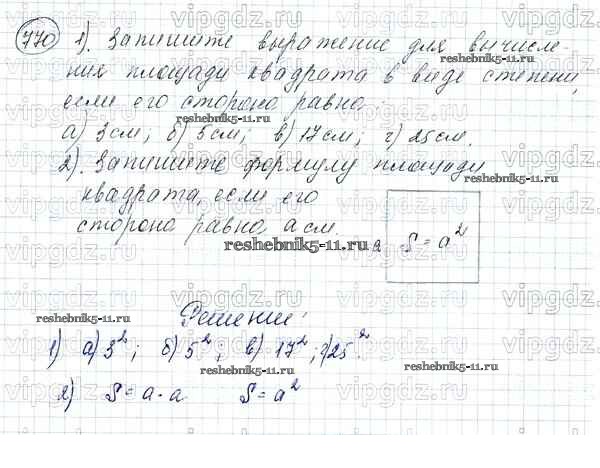 770 1). Запишите выражение для вычисле-
ния площади квадрата в виде степени,
если его сторона равна:
а) 3см; б) 5см; в) 17см; г) 25см.
2). Запишите формулу площади
квадрата, если его
сторона равна а см.
а S = a²
Решение:
1) а) 3²; б) 5²; в) 17²; г) 25².
2) S = a · a S = a²
vipgdz.com
reshebnik5-11.ru